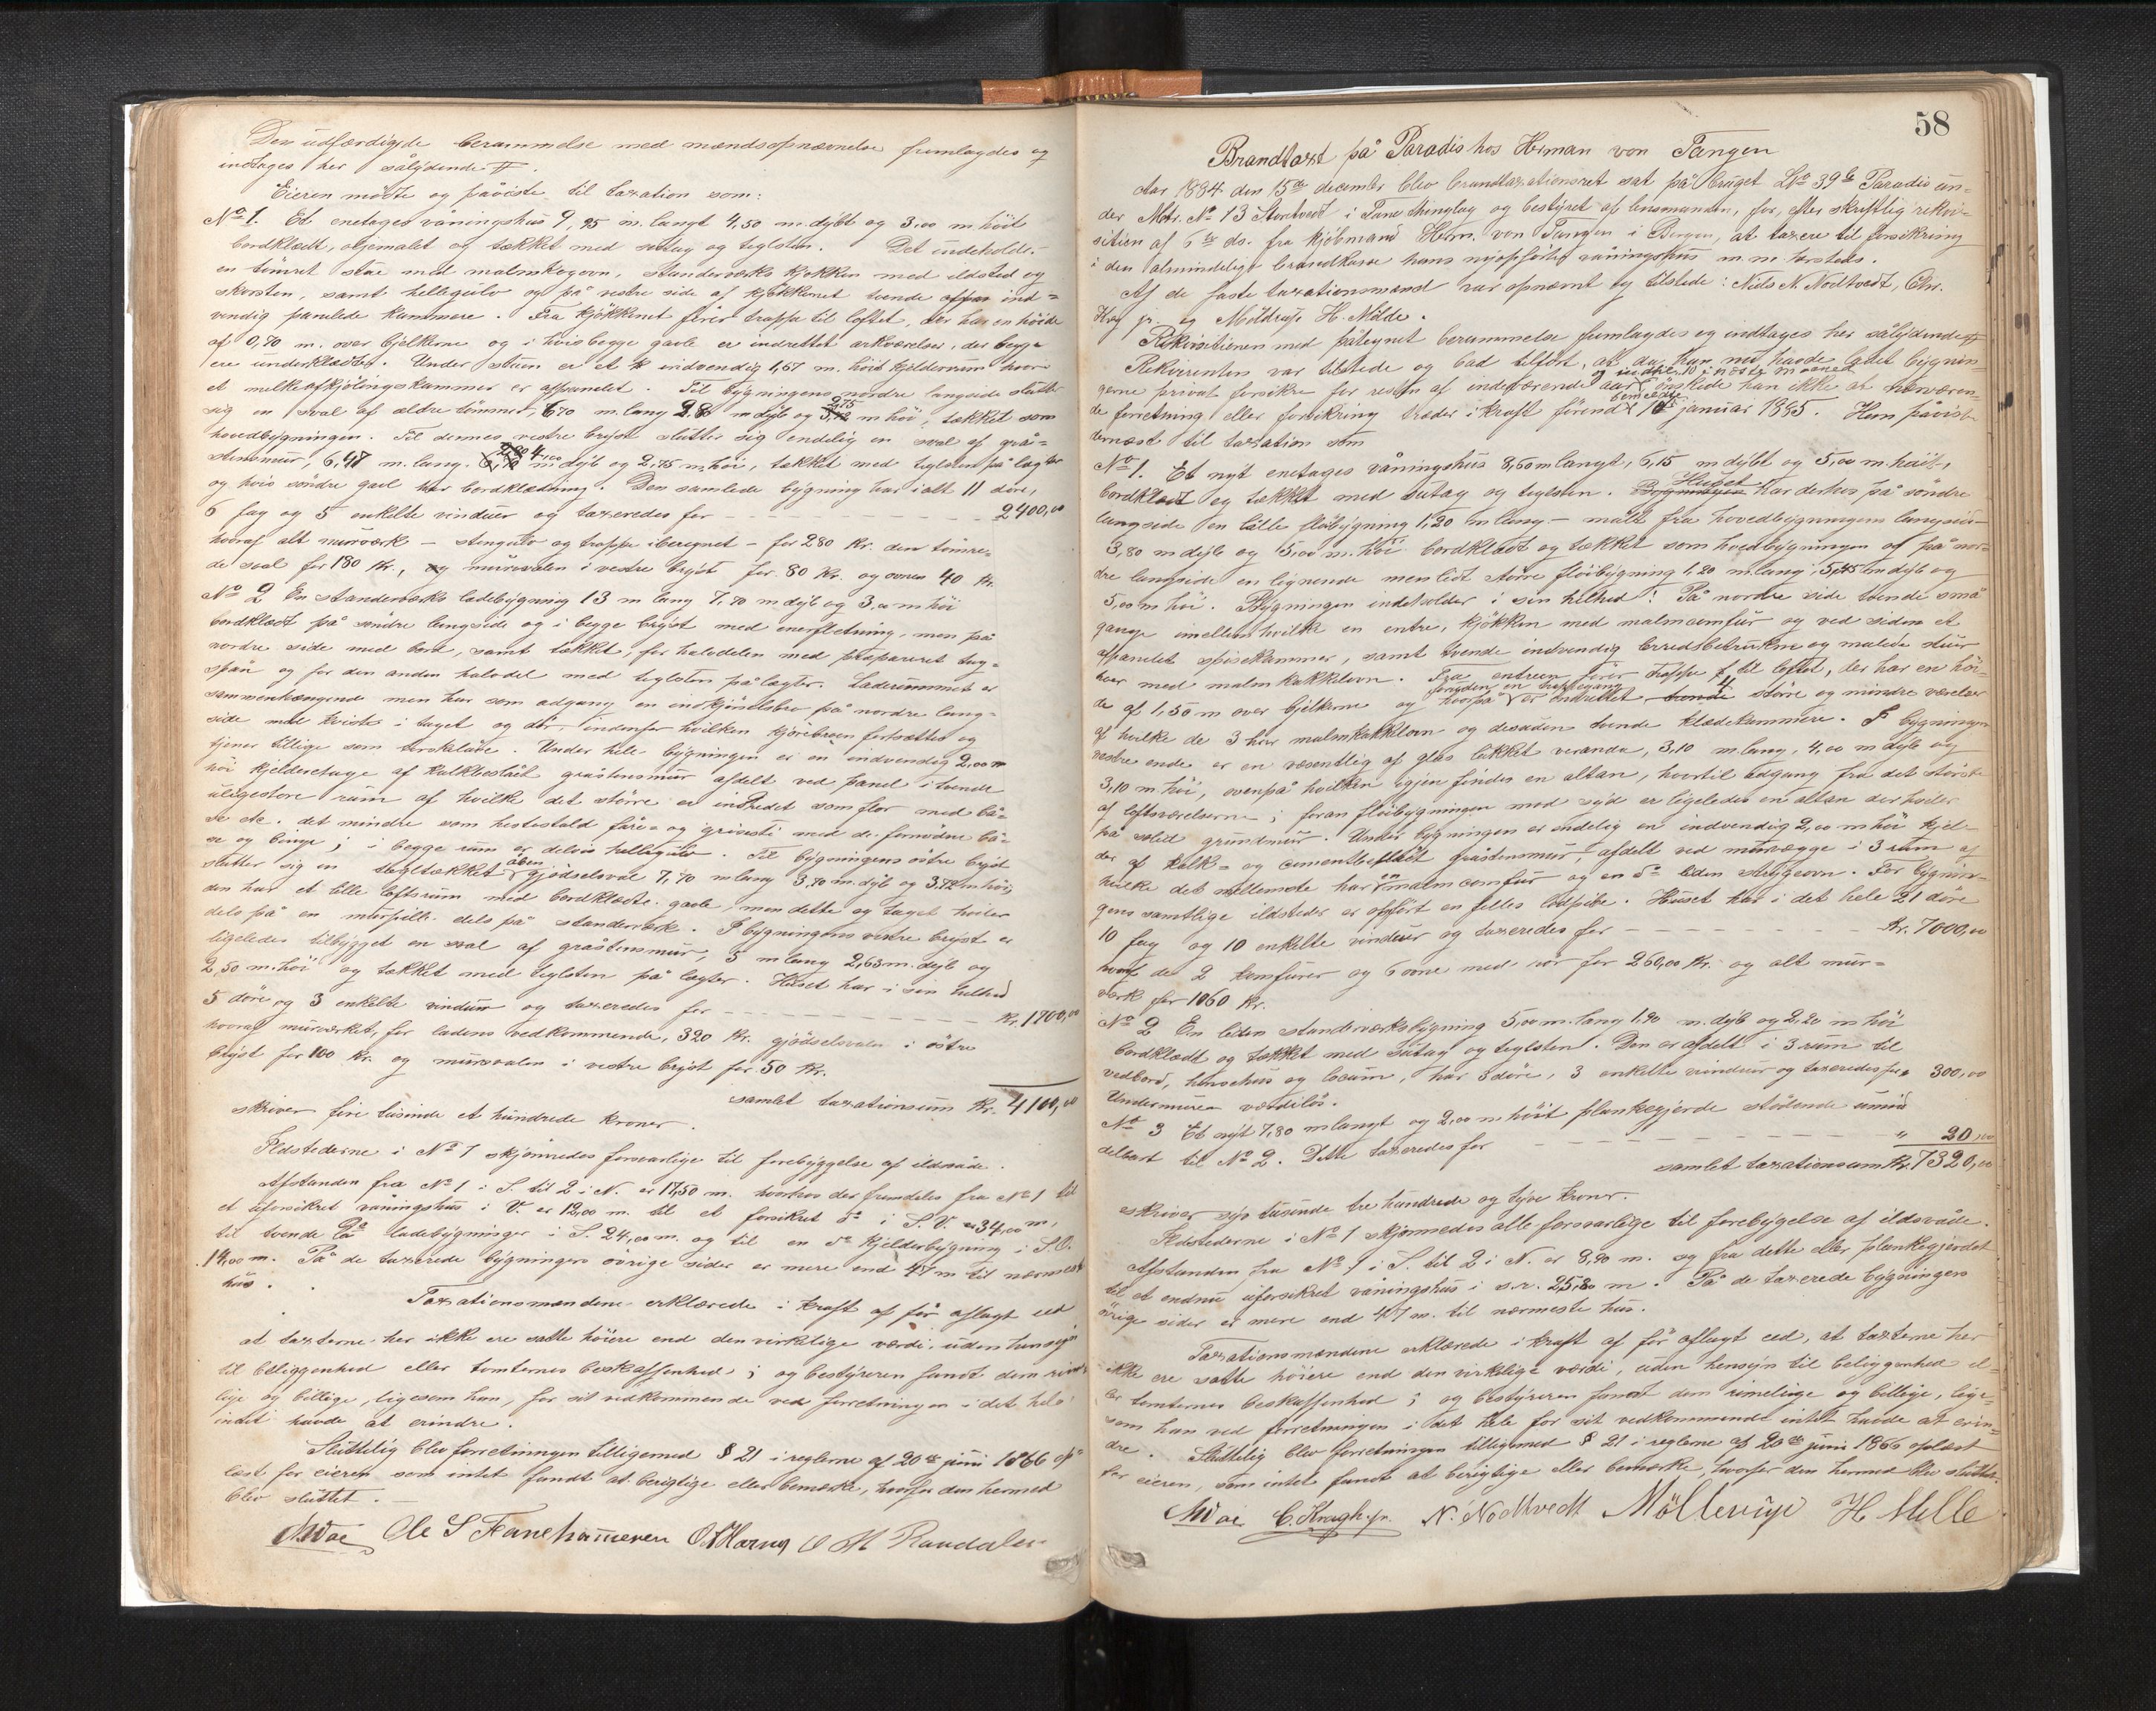 Den udfærdigede berammelse med mændsopnævnelse fremlagdes og
indtages her sålydende #.
Eieren mødte og påviste til taxation som:
No 1. Et enetages våningshus 9,95 m. langt 4,50 m. dybt og 3,00 m høit
bordklædt, oljemalet og tækket med sutag og teglsten. Det indeholder
en tømret stue med malmkogeovn, standerværks kjøkken med ildsted og
skorsten, samt hellegulv og på vestre side af kjøkkenet tvende ind=
vendig panelede kammere. Fra kjøkkenet fører trappe til loftet, der har en høide
af 0,70 m. over bjelkerne og i hvis begge gavle er indrettet værelser, der begge
ere underklædte. Under stuen er et indvendig 1,57 m. høit kjelderrum hvori
et melkeafkjølingskammer er afpanelet. Til bygningens nordre langside slutter
sig en sval af ældre tømmer, 6,70 m. lang 2,8 m dyb og 2,75 m høi, tækket som
hovedbygningen. Til dennes vestre bryst slutter sig endelig en sval af grå=
stensmur, 6,48 m. lang, 4,00 m dyb og 2,75 m. høi, tækket med teglsten på lægter
og hvis søndre gavl har bordklædning. Den samlede bygning har ialt 11 døre,
6 fag og 5 enkelte vinduer og taxeredes for 2400,00
hvoraf alt murværk - stengulv og trappe iberegnet - for 280 Kr. den tømre=
de sval for 180 Kr., og mursvalen i vestre bryst for 80 Kr. og ovnen 40 Kr.
No 2 En standerværks ladebygning 13 m lang 7,70 m dyb og 3,00 m høi
bordklædt på søndre langside og i begge bryst med enerfletning, men på
nordre side med bord, samt tækket, for halvdelen med præpareret tag=
spån og for den anden halvdel med teglsten på lægter. Laderummet er
sammenhængende men har som adgang en indkjørselsbro på nordre lang=
side med kvist i taget og dør, indenfor hvilken kjørebroen fortsættes og
tjener tillige som treskelåve. Under hele bygningen er en indvendig 2,00 m
høi kjelderetage af kalkbeslået gråstensmur afdelt ved panel i tvende
uligestore rum af hvilke det større er indredet som flor med bå=
se etc. det mindre som hestestald fåre= og grisesti med de fornødne bå=
se og binge; i begge rum er delvis hellegulv. Til bygningens østre bryst
slutter sig en tegltækket åben gjødselsval 7,70 m lang 3,70 m. dyb og 3,72 m høi,
den har et lille loftsrum med bordklædte gavle, men dette og taget hviler
dels på en murpille dels på standerværk. I bygningens vestre bryst er
ligeledes tilbygget en sval af gråstensmur, 5 m lang 2,63 m. dyb og
2,50 m. høi og tækket med teglsten på lægter. Huset har i sin helhed
5 døre og 3 enkelte vinduer og taxeredes for Kr. 1700,00
hvoraf murværket, for ladens vedkommende, 320 Kr. gjødselsvalen i østre
bryst for 100 Kr. og mursvalen i vestre bryst for 50 Kr.
samlet taxationsum Kr. 4100,00
skriver fire tusinde et hundrede kroner.
Ildstederne i No 1 skjønnedes forsvarlige til forebyggelse af ildsvåde.
Afstanden fra No 1 i S. til 2 i N. er 17,50 m. hvorhos der fremdeles fra No 1 til
et uforsikret våningshus i V. er 12,00 m. til et forsikret do i S.V. er 34,00 m,
til tvende do ladebygninger i S. 24,00 m. og til en do kjelderbygning i S.O.
14,00 m. På de taxerede bygningers øvrige sider er mere end 47 m til nærmeste
hus.
Taxationsmændene erklærede i kraft af før aflagt ed
at taxterne her ikke ere satte høiere end den virkelige værdi, uden hensyn
til beliggenhed eller tomternes beskaffenhed; og bestyreren fandt dem rime=
lige og billige, ligesom han, for sit vedkommende ved forretningen i det hele
intet havde at erindre.
Sluttelig blev forretningen tilligemed § 21 i reglerne af 20de juni 1866 op=
læst for eieren som intet fandt at berigtige eller bemærke, hvorfor den hermed
blev sluttet.
Ole S Fanehammeren O M Randalen
58
Brandtaxt på Paradis hos Herman von Tangen
Aar 1884 den 15de december blev brandtaxationsret sat på bruget Lno 39b Paradis un=
der Matr. No 13 Storetvedt i Fane thinglag og bestyret af lensmanden, for, efter skriftlig rekvi=
sition af 6te ds. fra kjøbmand Herm. von Tangen i Bergen, at taxere til forsikring
i den almindelige brandkasse hans nyopførte våningshus m.m. hersteds.
Af de faste taxationsmænd var opnævnt og tilstede: Nils N. Nødtvedt, Chr.
Krag jr. og Møldrup H. Milde.
Rekvisitionen med påtegnet berammelse fremlagdes og indtages her sålydende #
Rekvirenten var tilstede og bad tilført, at da han nu havde ladet bygnin=
gerne privat forsikre for resten af indeværende aar og indtil 10 i næste maaned ønskede han ikke at nærværen=
de forretning eller forsikring træder i kraft førend bemeldte 10 januar 1885. Han påviste
dernæst til taxation som
No 1. Et nyt enetages våningshus 8,60 m langt, 6,15 m dybt og 5,00 m. høit,
bordklædt og tækket med sutag og teglsten. Huset har derhos på søndre
langside en lille fløibygning 1,20 m lang - målt fra hovedbygningens langside -
3,80 m dyb og 5,00 m. høi bordklædt og tækket som hovedbygningen og på nor=
dre langside en lignende men lidt større fløibygning 1,20 m. lang, 5,45 m dyb og
5,00 m høi. Bygningen indeholder i sin helhed: På nordre side tvende små
gange imellem hvilke en entre, kjøkken med malmcomfur og ved siden et
afpanelet spisekammer, samt tvende indvendig lerredsbetrukne og malede stuer
hver med malm kakkelovn. Fra entreen fører trappe til loftet, der har en høi=
de af 1,50 m over bjelkerne og hvorpå foruden en trappegang er indrettet 4 større og mindre værelser
af hvilke de 3 har malmkakkelovn og desuden tvende klædekammere. I bygningens
vestre ende er en væsentlig af glas lukket veranda, 3,10 m. lang, 4,00 m dyb og
3,10 m. høi, ovenpå hvilken igjen findes en altan, hvortil adgang fra det største
af loftsværelserne; foran fløibygningen mod syd er ligeledes en altan der hviler
på solid grundmur. Under bygningen er endelig en indvendig 2,00 m høi kjel=
der af kalk= og cementbeslået gråstensmur, afdelt ved murvægge i 3 rum af
hvilke det mellemste har en malmcomfur og en do liden strygeovn. For bygnin=
gens samtlige ildsteder er opført en fælles rørpibe. Huset har i det hele 21 døre
10 fag og 10 enkelte vinduer og taxeredes for Kr. 7000,00
hvoraf de 2 komfurer og 6 ovne med rør for 260,00 Kr. og alt mur=
værk for 1060 Kr.
No 2 En liden standerværksbygning 5,00 m. lang 1,90 m. dyb og 2,20 m høi
bordklædt og tækket med sutag og teglsten. Den er afdelt i 3 rum til
vedbod, hønsehus og locum, har 3 døre, 3 enkelte vinduer og taxeredes for 300,00
Undermuren værdiløs.
No 3 Et nyt 7,80 m langt og 2,00 m høit plankegjerde stødende umid=
delbart til No 2. Dette taxeredes for " 20,00
samlet taxationsum Kr. 7320,00
skriver syv tusinde tre hundrede og tyve kroner.
Ildstederne i No 1 skjønnedes alle forsvarlige til forebygelse af ildsvåde.
Afstanden fra No 1 i S. til 2 i N. er 8,90 m. og fra dette eller plankegjerdet
til et endnu uforsikret våningshus i s.v. 25,80 m. På de taxerede bygningers
øvrige sider er mere end 47 m. til nærmeste hus.
Taxationsmændene erklærede i kraft af før aflagt eed, at taxterne her
ikke ere satte høiere end den virkelige værdi, uden hensyn til beliggenhed el=
ler tomternes beskaffenhed; og bestyreren fandt dem rimelige og billige, lige=
som han ved forretningen i det hele for sit vedkommende intet havde at erin=
dre. Sluttelig blev forretningen tilligemed § 21 i reglerne af 20de juni 1866 oplæst
for eieren, som intet fandt at berigtige eller bemærke, hvorfor den hermed blev sluttet.
C. Kragh. jr. N. Nødtvedt Møllerup H Milde